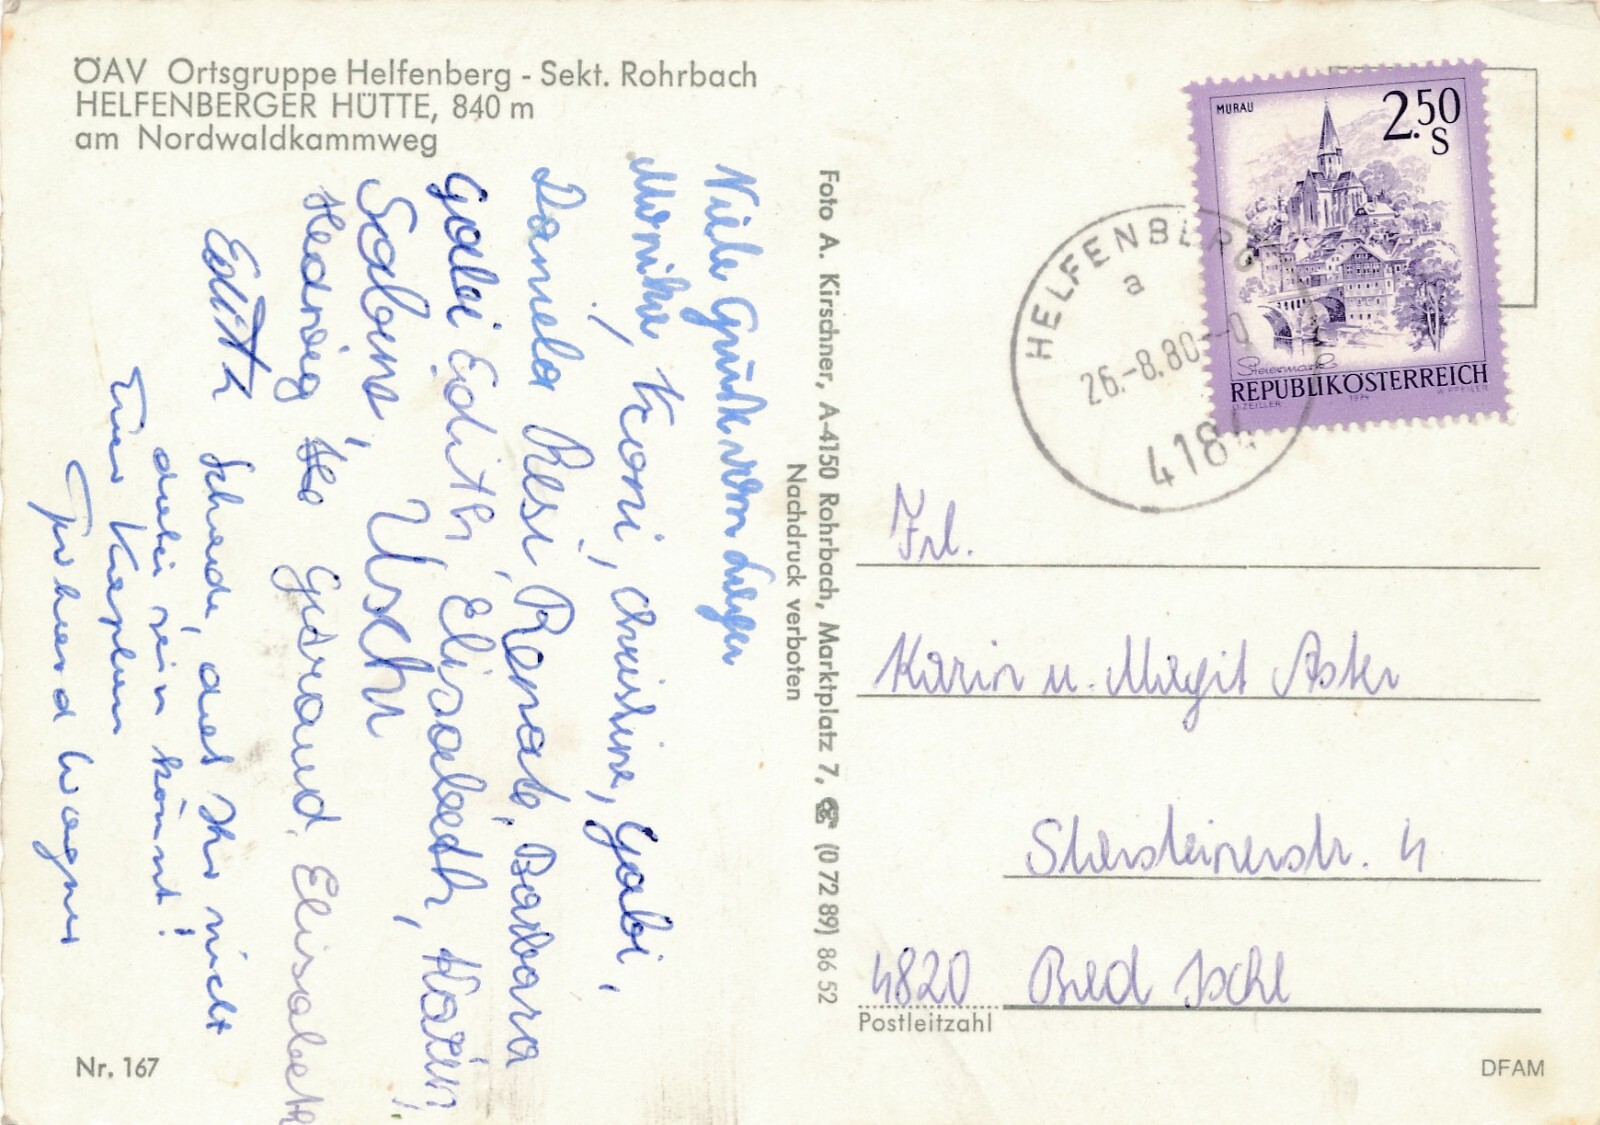 ÖAV Ortsgruppe Helfenberg - Sekt. Rohrbach
HELFENBERGER HÜTTE, 840 m
am Nordwaldkammweg
Viele Grüße vom Lager
Monika, Kroni, Christine, Gabi,
Daniela Resi, Renate, Barbara
Gabi Edith, Elisabeth, Karin,
Sabine, Uschi
Hedwig Gertraud, Elisabeth
Edith
Schade, daß Ihr nicht
dabei sein könnt!
Euer Kaplan
Gerhard Wagner
Foto A. Kirschner, A-4150 Rohrbach, Marktplatz 7, ☎ (0 72 89) 86 52
Nachdruck verboten
MURAU
2.50
S
Steiermark
REPUBLIK ÖSTERREICH
O. ZEILLER 1974 A. PFEILER
HELFENBERG
a
26.-8.80--0
4184
Frl.
Karin u. Margit Aster
Stersteinerstr. 4
4820 Bad Ischl
Postleitzahl
Nr. 167
DFAM